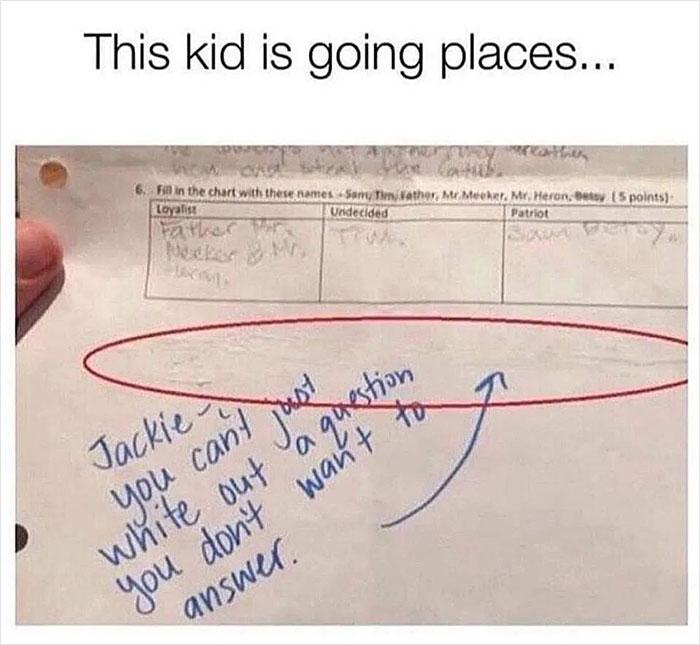 This kid is going places...
6. Fill in the chart with these names - Sam, Tim, Father, Mr. Meeker, Mr. Heron, Betsy (5 points)
Loyalist Undecided Patriot
Father Mr. Tim. Sam Betsy.
Meeker & Mr.
Heron.
Jackie -
you can't just
white out a question
you don't want to
answer.